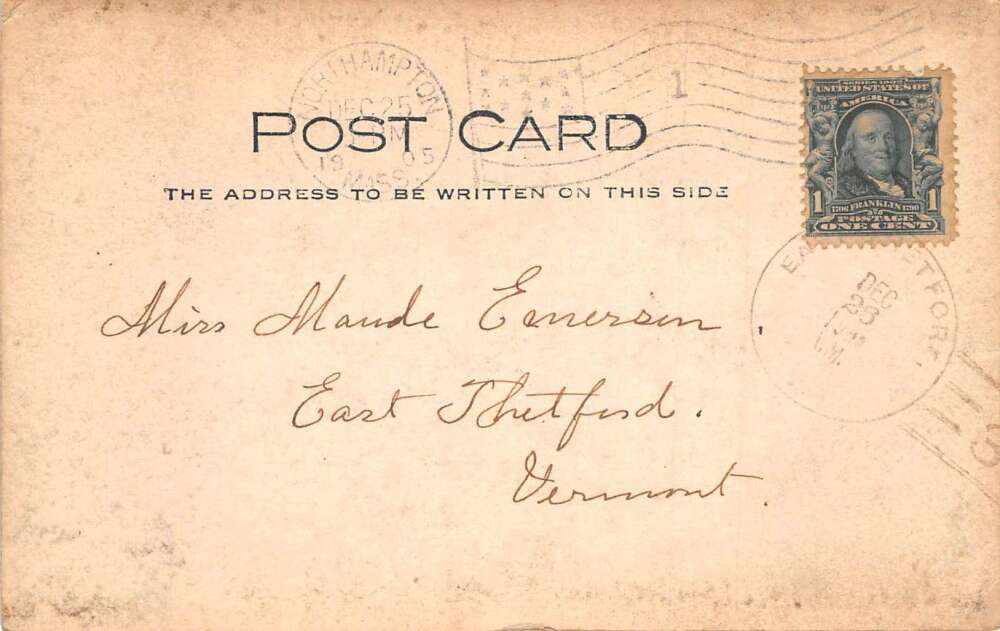 NORTHAMPTON
DEC 25
M
1905
MASS.
1
SERIES 1902
UNITED STATES OF
AMERICA
1 1706 FRANKLIN 1790 1
POSTAGE
ONE CENT
POST CARD
THE ADDRESS TO BE WRITTEN ON THIS SIDE
DEC
26
Miss Maude Emerson.
East Thetford.
Vermont.